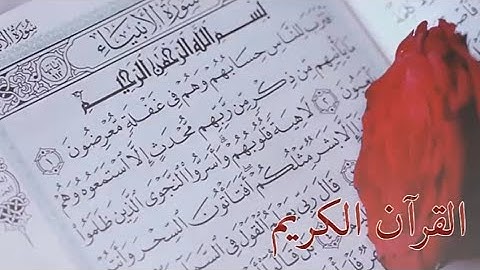 سُورَةُ الأَنبِيَاءِ
بِسْمِ اللَّهِ الرَّحْمَٰنِ الرَّحِيمِ
ٱقْتَرَبَ لِلنَّاسِ حِسَابُهُمْ وَهُمْ فِى غَفْلَةٍ مُّعْرِضُونَ ١
مَا يَأْتِيهِم مِّن ذِكْرٍ مِّن رَّبِّهِم مُّحْدَثٍ إِلَّا ٱسْتَمَعُوهُ وَهُمْ
٢ لَاهِيَةً قُلُوبُهُمْ وَأَسَرُّواْ ٱلنَّجْوَى ٱلَّذِينَ ظَلَمُواْ
إِلَّا بَشَرٌ مِّثْلُكُمْ أَفَتَأْتُونَ ٱلسِّحْرَ وَأَنتُمْ
قَالَ رَبِّى يَعْلَمُ ٱلْقَوْلَ فِى ٱلسَّمَآءِ
القرآن الكريم